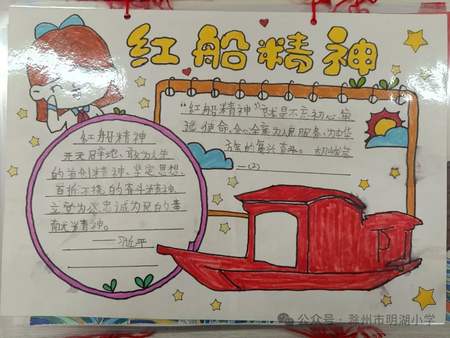 红船精神
"红船精神"就是不忘初心,牢
记使命,全心全意为人民服务,为中华
一(2)
红船精神
开天辟地、敢为人先
的首创精神、坚定思想、
百折不挠的奋斗精神、
立党为公、忠诚为民的奉
献精神。
公众号·滁州市明湖小学